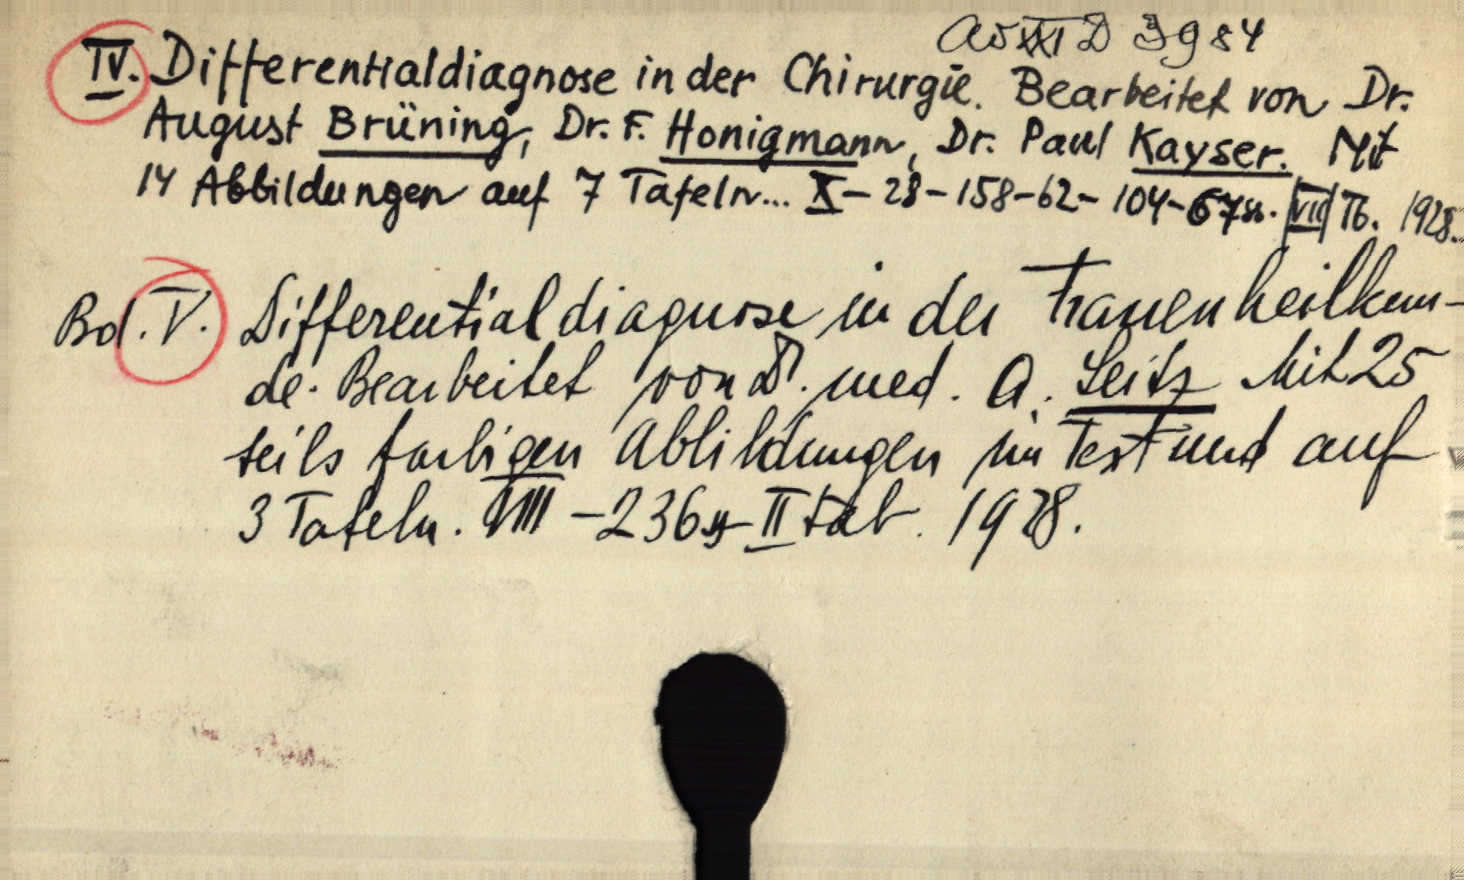 IV. Differentialdiagnose in der Chirurgie. Bearbeitet von Dr.
August Brüning, Dr. F. Honigmann, Dr. Paul Kayser. Mit
14 Abbildungen auf 7 Tafeln... X-28-158-62-104-67 ss. |VII| Tb. 1928.
Bd. V. Differentialdiagnose in der Frauenheilkun-
de. Bearbeitet von Dr. med. A. Seitz Mit 25
teils farbigen Abbildungen im Text und auf
3 Tafeln. VIII-236 II tab. 1928.